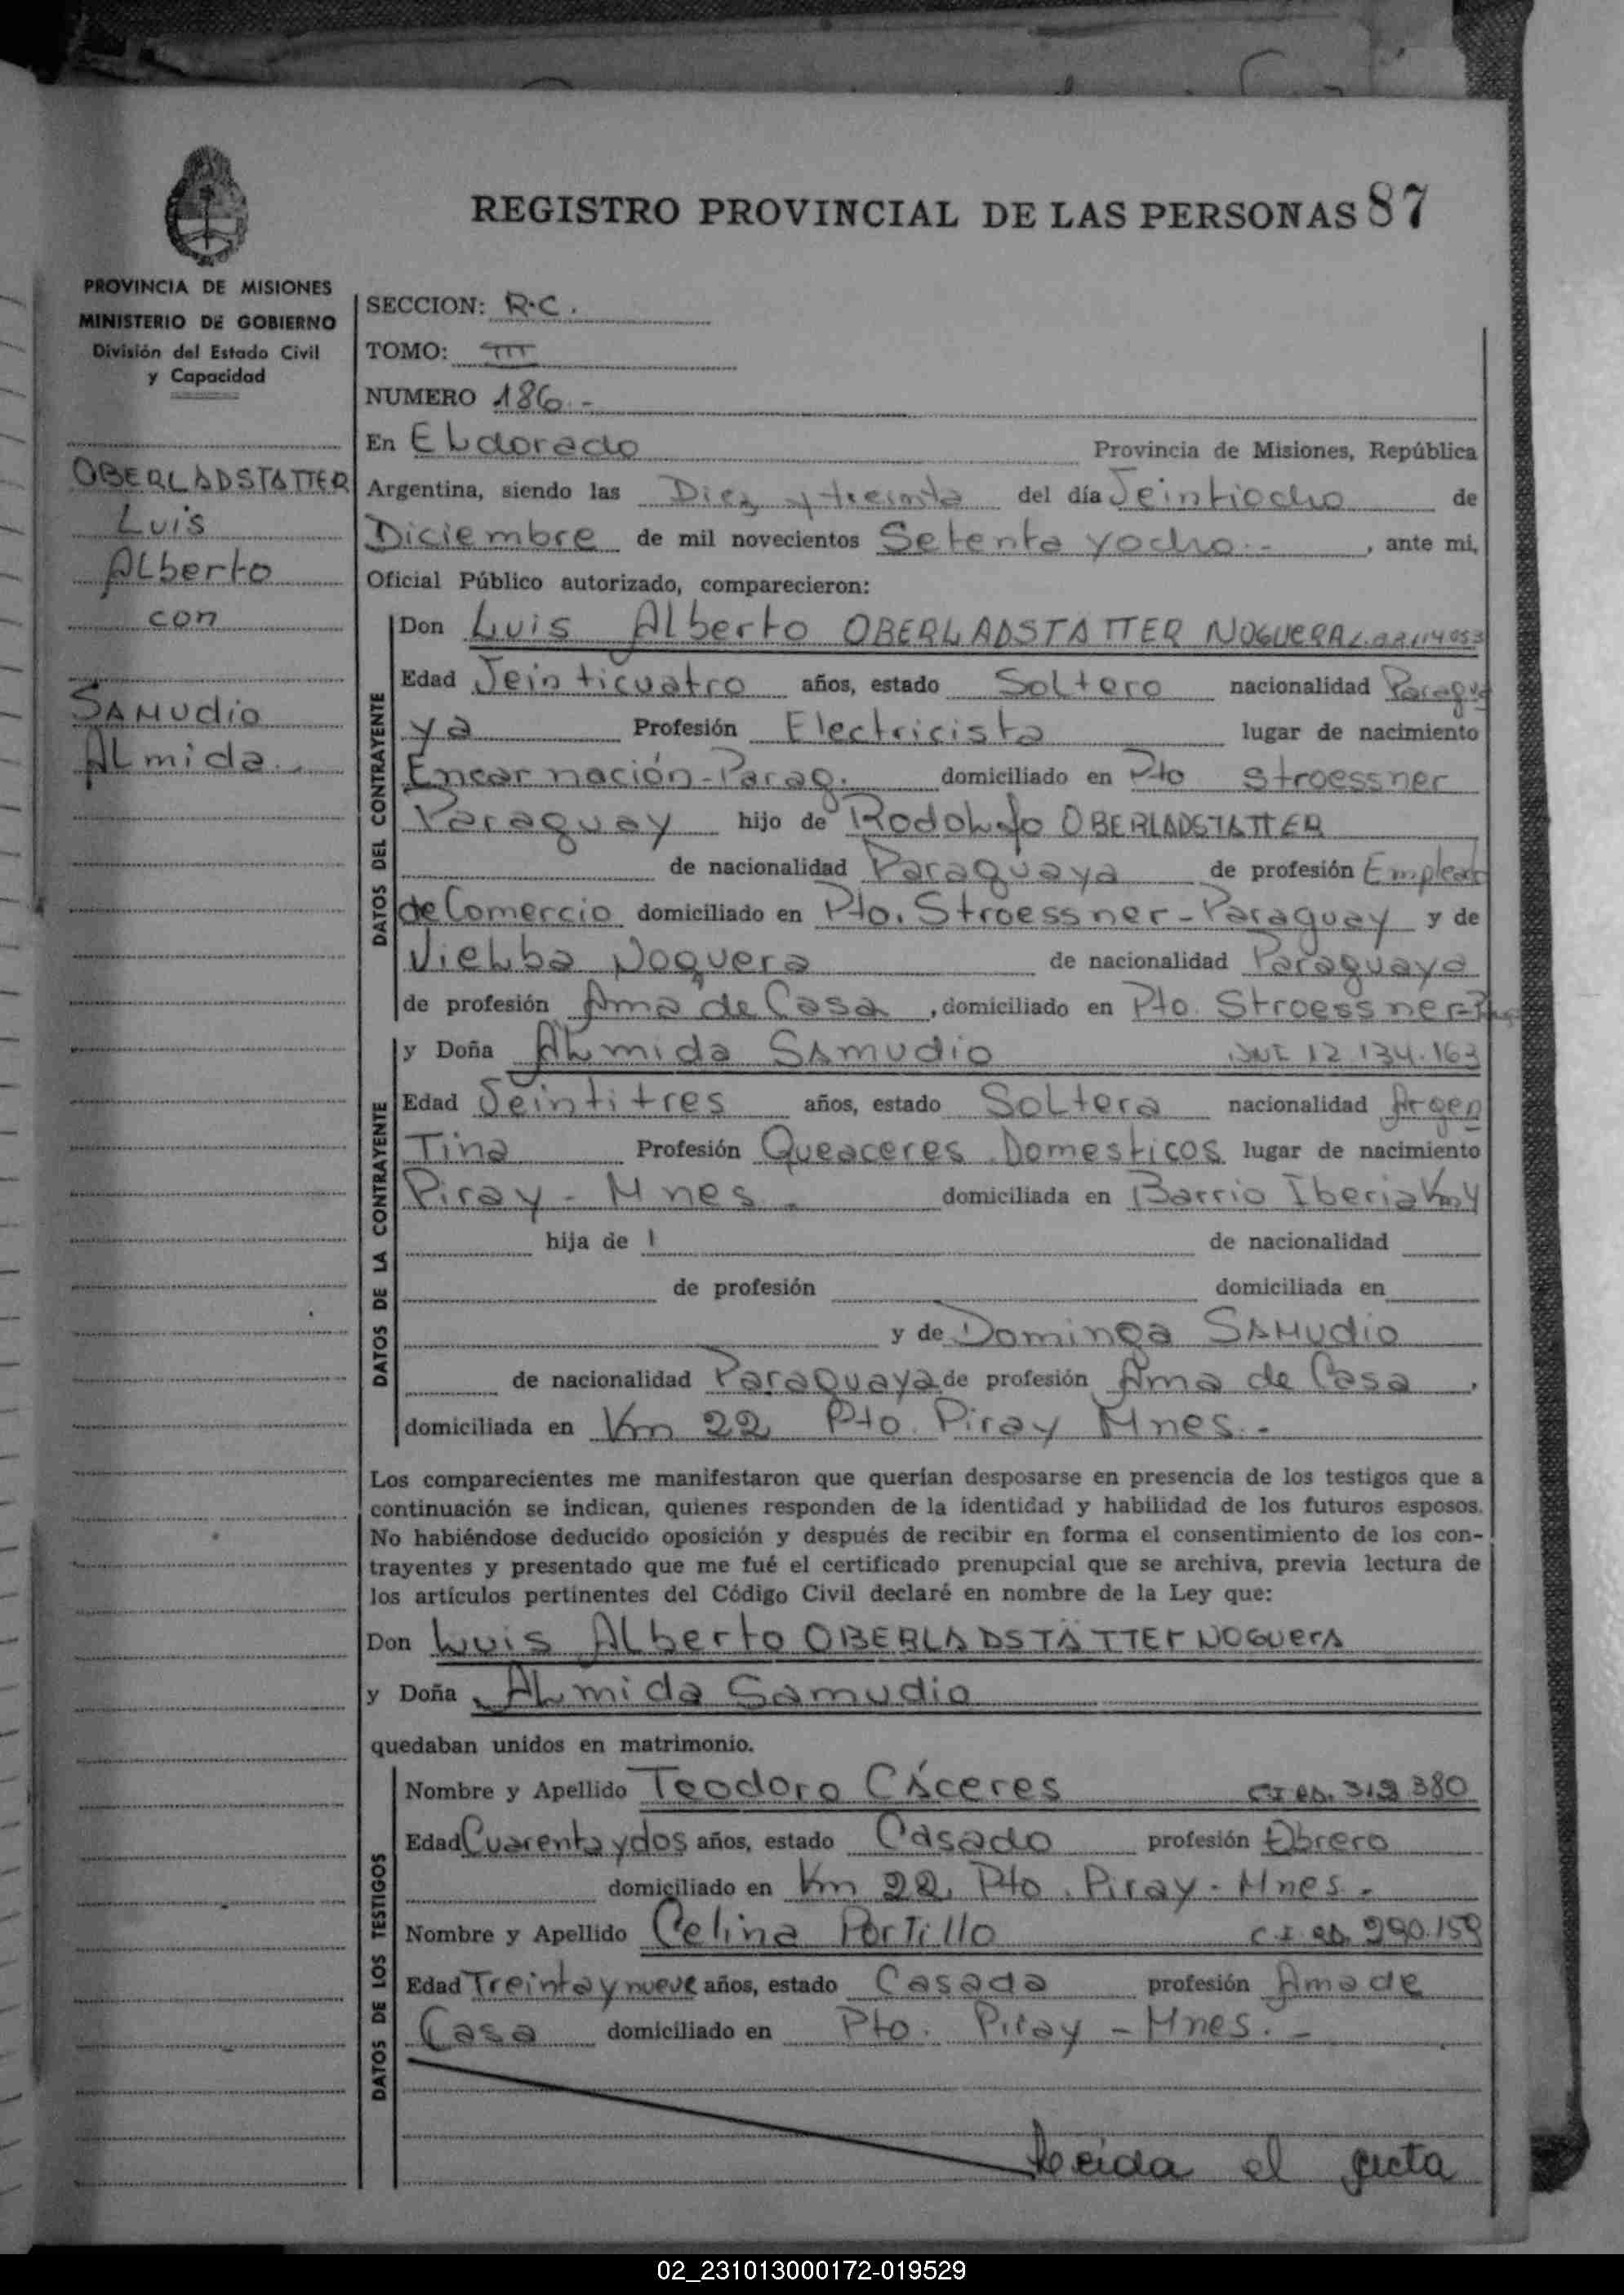 REGISTRO PROVINCIAL DE LAS PERSONAS 87
PROVINCIA DE MISIONES
MINISTERIO DE GOBIERNO
División del Estado Civil
y Capacidad
OBERLADSTATTER
Luis
Alberto
con
SAMudio
ALmida.
SECCION: R.C.
TOMO: III
NUMERO 186.-
En ELdorado Provincia de Misiones, República
Argentina, siendo las Diez y treinta del día Veintiocho de
Diciembre de mil novecientos Setenta y ocho.- , ante mi,
Oficial Público autorizado, comparecieron:
DATOS DEL CONTRAYENTE
Don Luis Alberto OBERLADSTATTER NOGUERA
Edad Veinticuatro años, estado Soltero nacionalidad Paragua
ya Profesión Electricista lugar de nacimiento
Encarnación-Parag. domiciliado en Pto Stroessner
Paraguay hijo de Rodolfo OBERLADSTATTER
de nacionalidad Paraguaya de profesión Empleado
de Comercio domiciliado en Pto. Stroessner-Paraguay y de
Vielba Noguera de nacionalidad Paraguaya
de profesión Ama de Casa , domiciliado en Pto. Stroessner-
DATOS DE LA CONTRAYENTE
y Doña ALmida SAmudio DNI 12.134.163
Edad Veintitres años, estado Soltera nacionalidad Argen
Tina Profesión Queaceres Domesticos lugar de nacimiento
Piray - Mnes.- domiciliada en Barrio Iberia Km 4
hija de de nacionalidad
de profesión domiciliada en
y de Dominga SAMudio
de nacionalidad Paraguaya de profesión Ama de Casa ,
domiciliada en Km 22 Pto. Piray Mnes.-
Los comparecientes me manifestaron que querían desposarse en presencia de los testigos que a
continuación se indican, quienes responden de la identidad y habilidad de los futuros esposos.
No habiéndose deducido oposición y después de recibir en forma el consentimiento de los con-
trayentes y presentado que me fué el certificado prenupcial que se archiva, previa lectura de
los artículos pertinentes del Código Civil declaré en nombre de la Ley que:
Don Luis Alberto OBERLADSTÄTTER NOGUERA
y Doña ALmida Samudio
quedaban unidos en matrimonio.
DATOS DE LOS TESTIGOS
Nombre y Apellido Teodoro Cáceres 319.380
Edad Cuarenta y dos años, estado Casado profesión Obrero
domiciliado en Km 22, Pto. Piray - Mnes.-
Nombre y Apellido Celina Portillo C.I. 290.159
Edad Treinta y nueve años, estado Casada profesión Ama de
Casa domiciliado en Pto. Piray - Mnes.-
Leida el acta
02_231013000172-019529